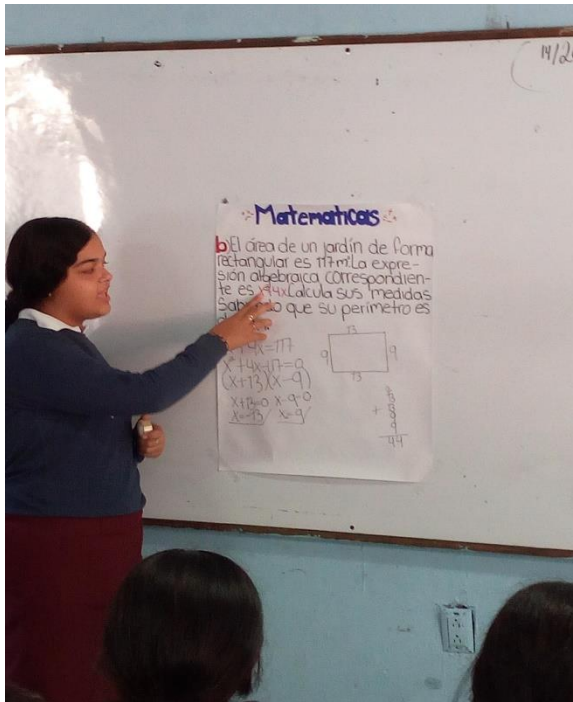 14/2
Matematicas
b) El área de un jardín de forma
rectangular es 117m² La expre-
sión algebraica correspondien-
te es x²+4x Calcula sus medidas
que su perímetro es
+4x=117
x²+4x-117=0
(x+13)(x-9)
x+13=0 x-9=0
x=-13/ x=9/
13
9 9
13
+
9
9
44